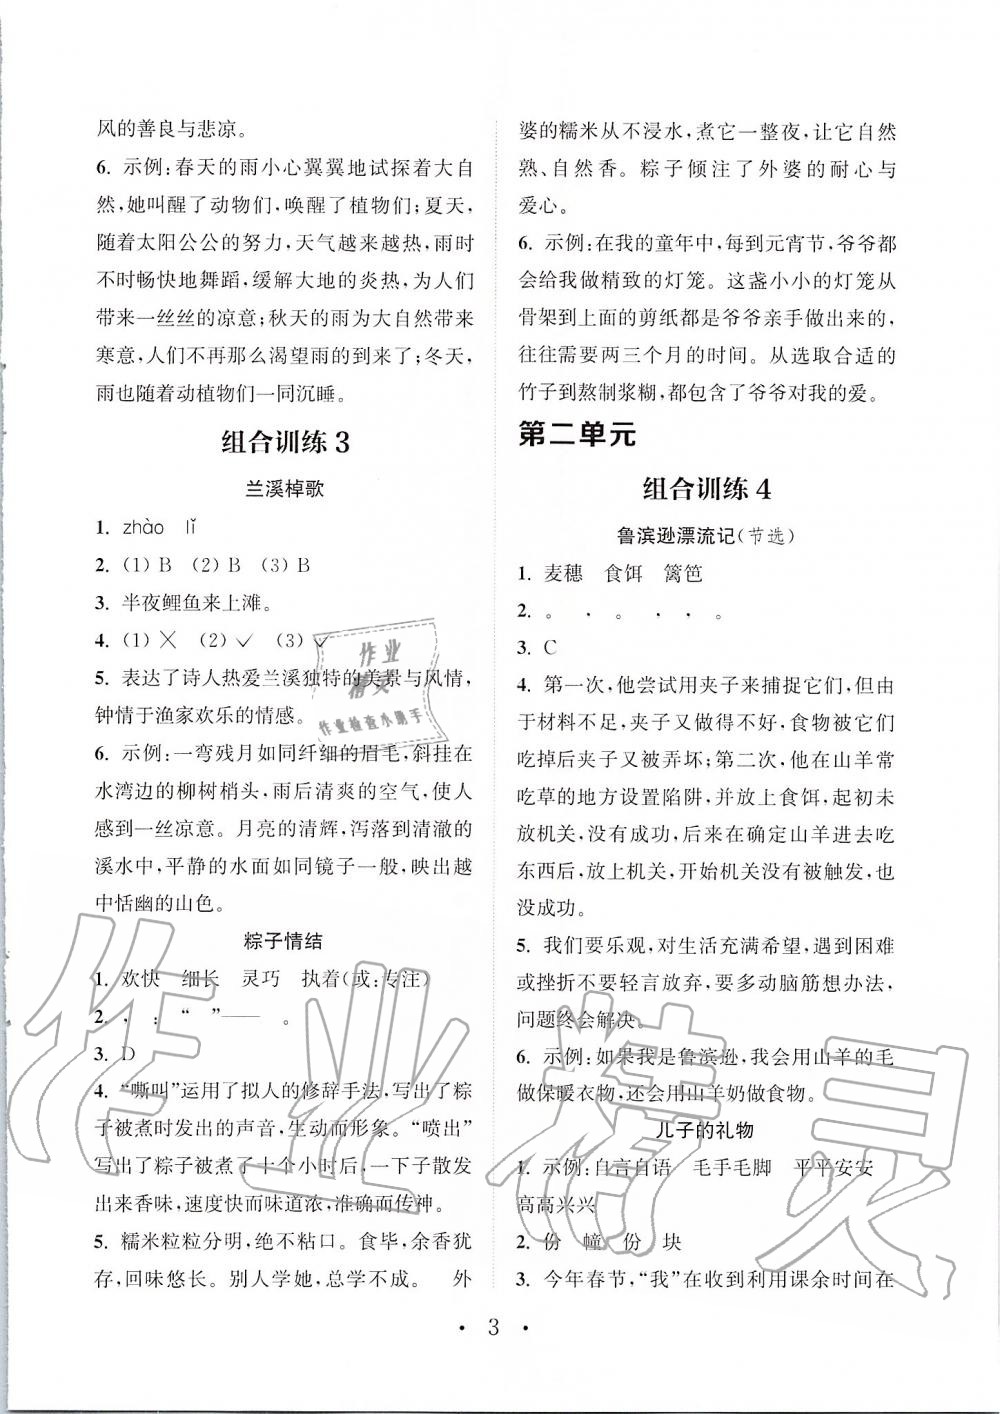 风的善良与悲凉。
6. 示例:春天的雨小心翼翼地试探着大自
然,她叫醒了动物们,唤醒了植物们;夏天,
随着太阳公公的努力,天气越来越热,雨时
不时畅快地舞蹈,缓解大地的炎热,为人们
带来一丝丝的凉意;秋天的雨为大自然带来
寒意,人们不再那么渴望雨的到来了;冬天,
雨也随着动植物们一同沉睡。
组合训练 3
兰溪棹歌
1. zhào lǐ
2. (1)B (2)B (3)B
3. 半夜鲤鱼来上滩。
4. (1)× (2)✓ (3)✓
5. 表达了诗人热爱兰溪独特的美景与风情,
钟情于渔家欢乐的情感。
6. 示例:一弯残月如同纤细的眉毛,斜挂在
水湾边的柳树梢头,雨后清爽的空气,使人
感到一丝凉意。月亮的清辉,泻落到清澈的
溪水中,平静的水面如同镜子一般,映出越
中恬幽的山色。
粽子情结
1. 欢快 细长 灵巧 执着(或:专注)
2. , : “ ”—— 。
3. D
4. “嘶叫”运用了拟人的修辞手法,写出了粽
子被煮时发出的声音,生动而形象。“喷出”
写出了粽子被煮了十个小时后,一下子散发
出来香味,速度快而味道浓,准确而传神。
5. 糯米粒粒分明,绝不粘口。食毕,余香犹
存,回味悠长。别人学她,总学不成。 外
婆的糯米从不浸水,煮它一整夜,让它自然
熟、自然香。粽子倾注了外婆的耐心与
爱心。
6. 示例:在我的童年中,每到元宵节,爷爷都
会给我做精致的灯笼。这盏小小的灯笼从
骨架到上面的剪纸都是爷爷亲手做出来的,
往往需要两三个月的时间。从选取合适的
竹子到熬制浆糊,都包含了爷爷对我的爱。
第二单元
组合训练 4
鲁滨逊漂流记(节选)
1. 麦穗 食饵 篱笆
2. 。 , 。 , , 。
3. C
4. 第一次,他尝试用夹子来捕捉它们,但由
于材料不足,夹子又做得不好,食物被它们
吃掉后夹子又被弄坏;第二次,他在山羊常
吃草的地方设置陷阱,并放上食饵,起初未
放机关,没有成功,后来在确定山羊进去吃
东西后,放上机关,但机关没有被触发,也
没成功。
5. 我们要乐观,对生活充满希望,遇到困难
或挫折不要轻言放弃,要多动脑筋想办法,
问题终会解决。
6. 示例:如果我是鲁滨逊,我会用山羊的毛
做保暖衣物,还会用山羊奶做食物。
儿子的礼物
1. 示例:自言自语 毛手毛脚 平平安安
高高兴兴
2. 份 幢 份 块
3. 今年春节,“我”在收到利用课余时间在
· 3 ·
作业
精灵
作业检查小助手
作业精灵